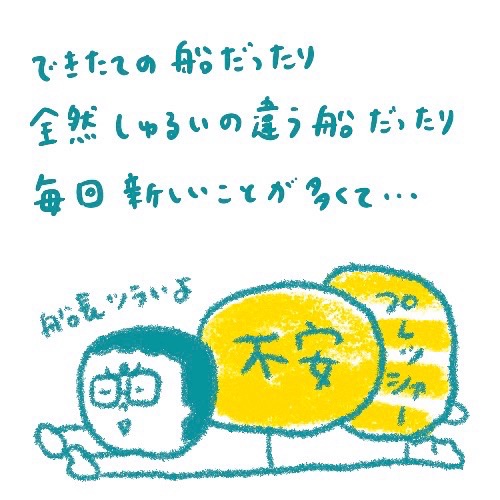 できたての船だったり
全然しゅるいの違う船だったり
毎回新しいことが多くて...
船長ツラいよ
不安
プレッシャー